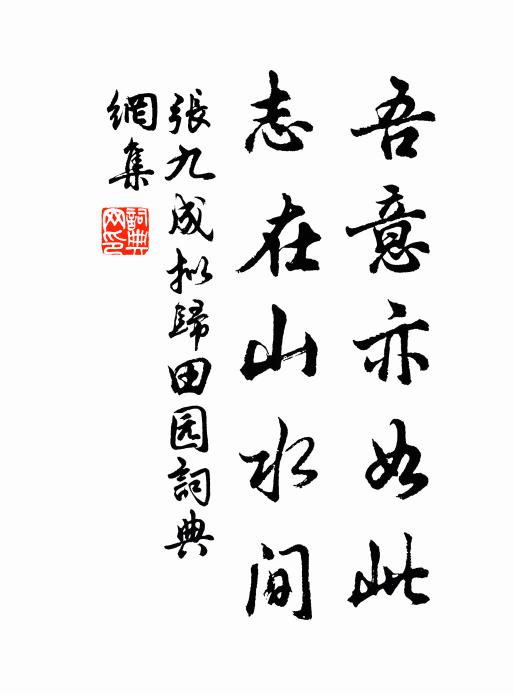 吾意亦如此
志在山水间
張九成拟歸田园詞典
網集
詞典
网印